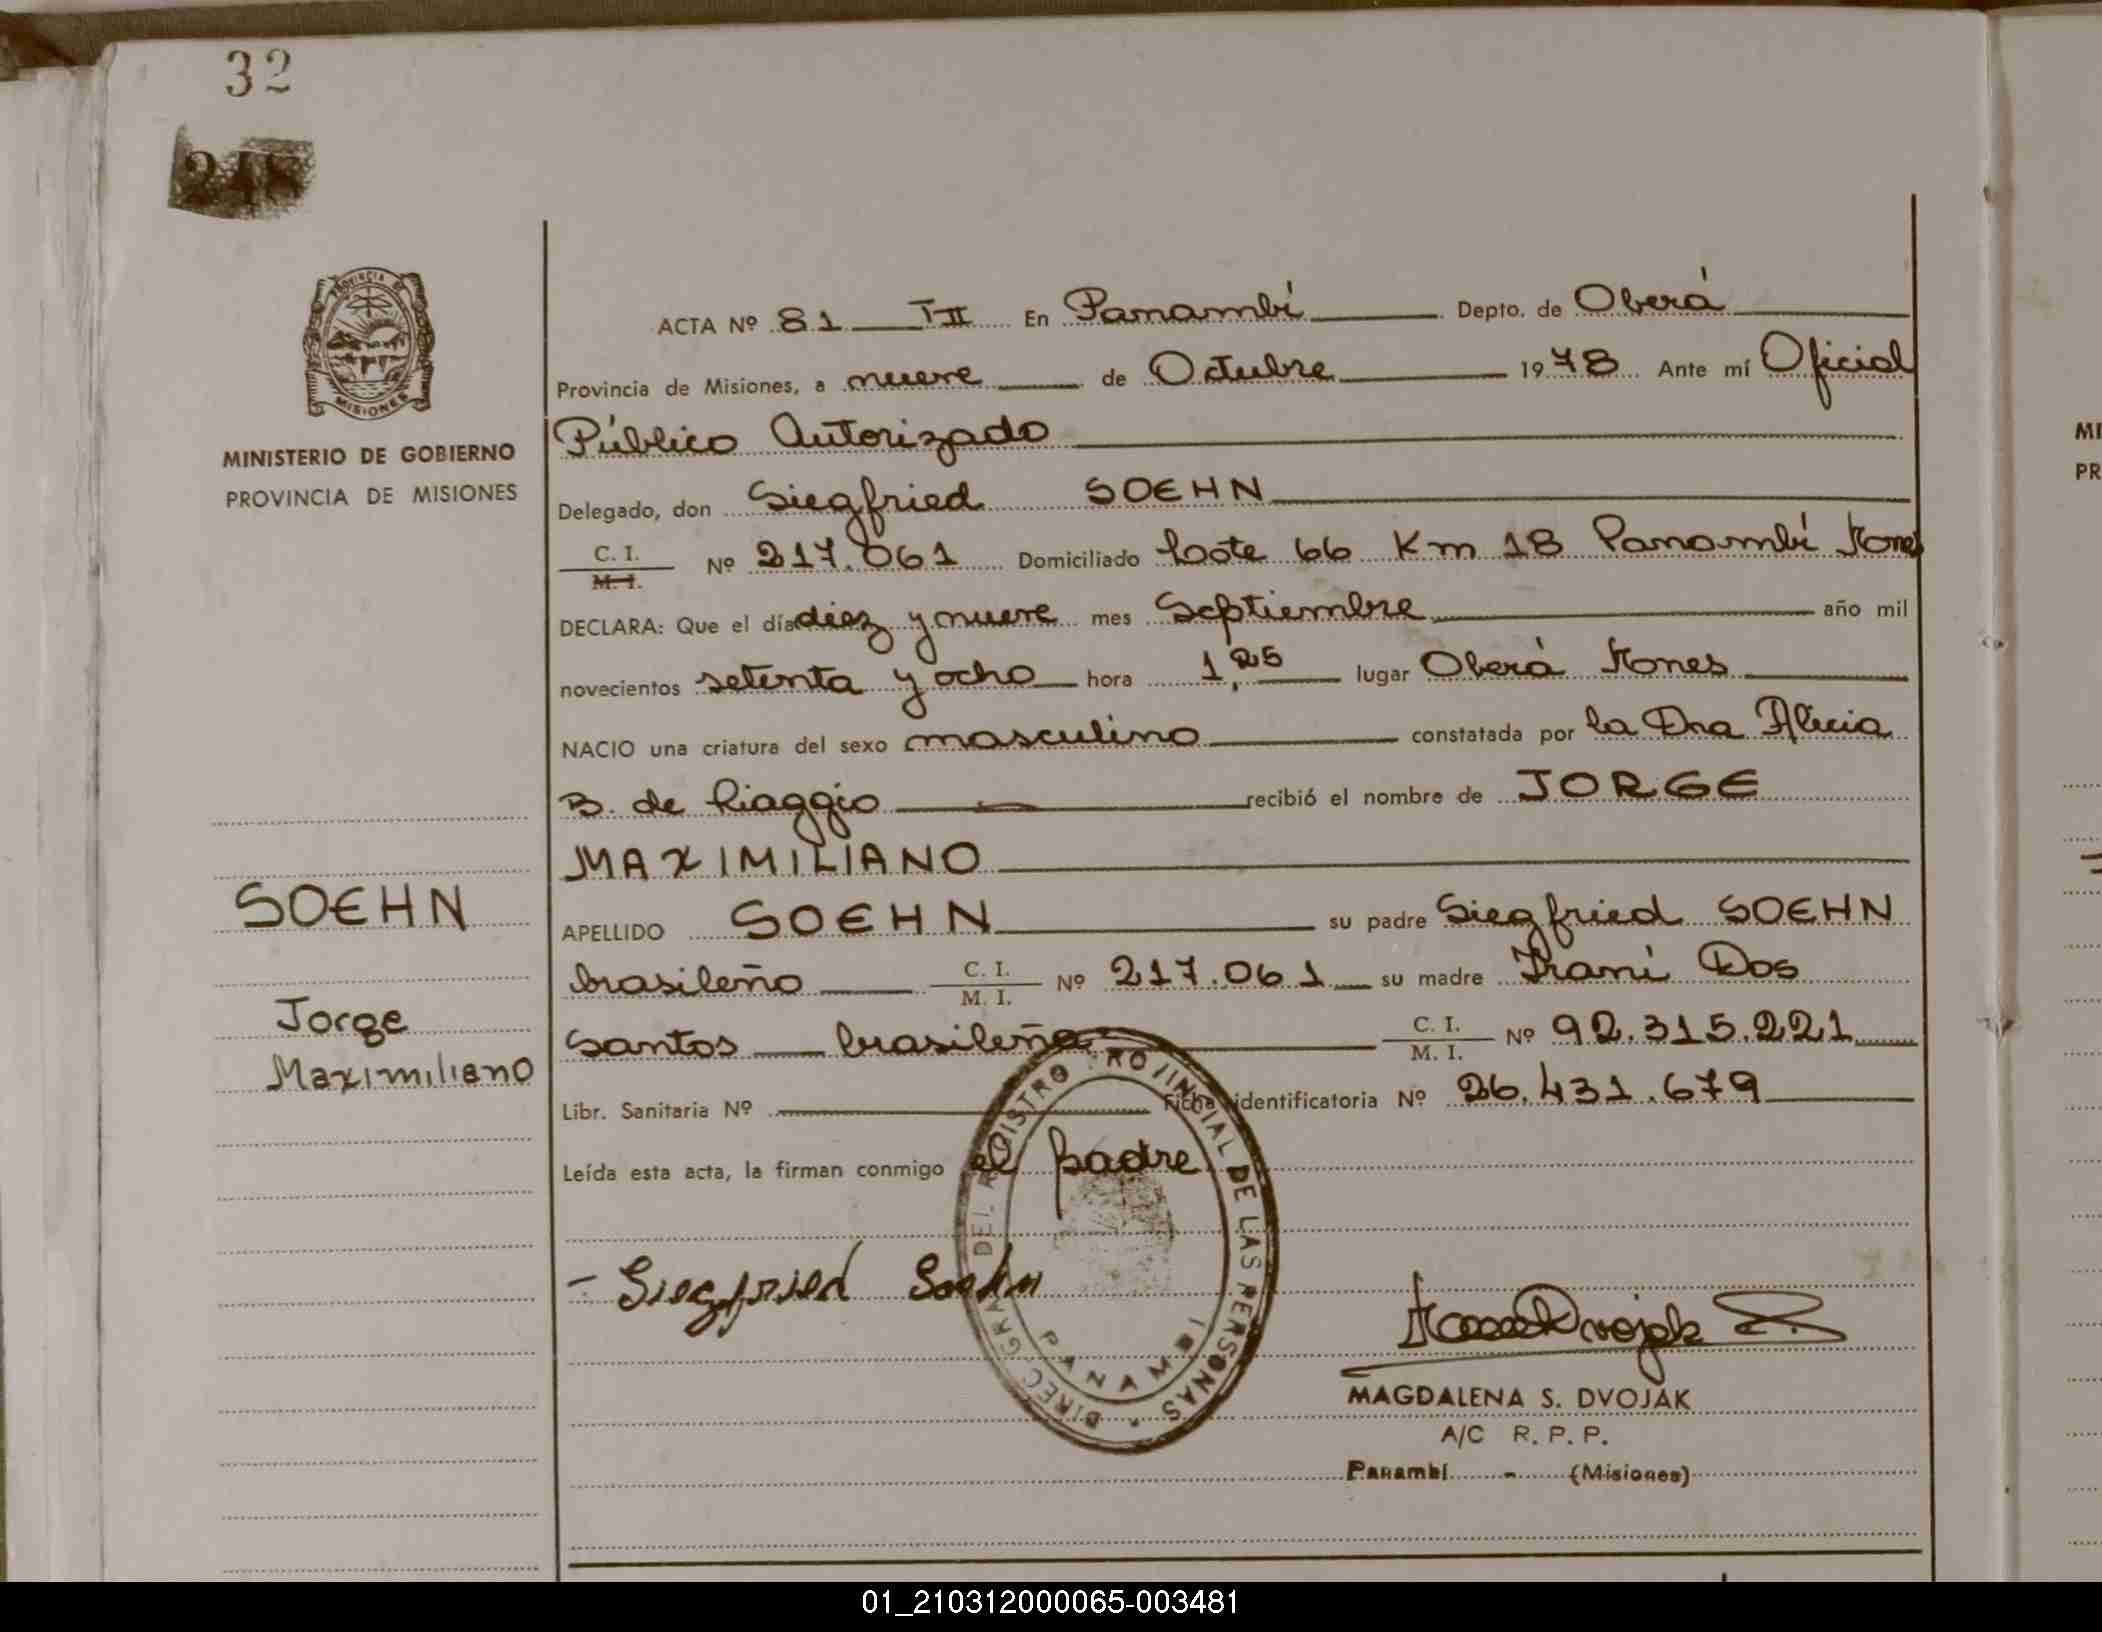 32
PROVINCIA DE
MISIONES
MINISTERIO DE GOBIERNO
PROVINCIA DE MISIONES
ACTA Nº 81 TII En Panambí Depto. de Oberá
Provincia de Misiones, a nueve de Octubre 1978 Ante mí Oficial
Público Autorizado
Delegado, don Siegfried SOEHN
C. I.
M. I. Nº 217.061 Domiciliado Lote 66 Km 18 Panambí Mnes
DECLARA: Que el día diez y nueve mes Septiembre año mil
novecientos setenta y ocho hora 1,25 lugar Oberá Mnes
NACIO una criatura del sexo masculino constatada por la Dra Alicia
B. de Riaggio recibió el nombre de JORGE
MAXIMILIANO
APELLIDO SOEHN su padre Siegfried SOEHN
brasileño C. I. M. I. Nº 217.061 su madre Irani Dos
Santos brasileña C. I. M. I. Nº 92.315.221
Libr. Sanitaria Nº Ficha identificatoria Nº 26.431.679
Leída esta acta, la firman conmigo el padre
SOEHN
Jorge
Maximiliano
- Siegfried Soehn
DIREC GRAL DEL REGISTRO PROVINCIAL DE LAS PERSONAS
PANAMBI
Dvojak
MAGDALENA S. DVOJAK
A/C R. P. P.
Panambí - (Misiones)
MI
PR
01_210312000065-003481